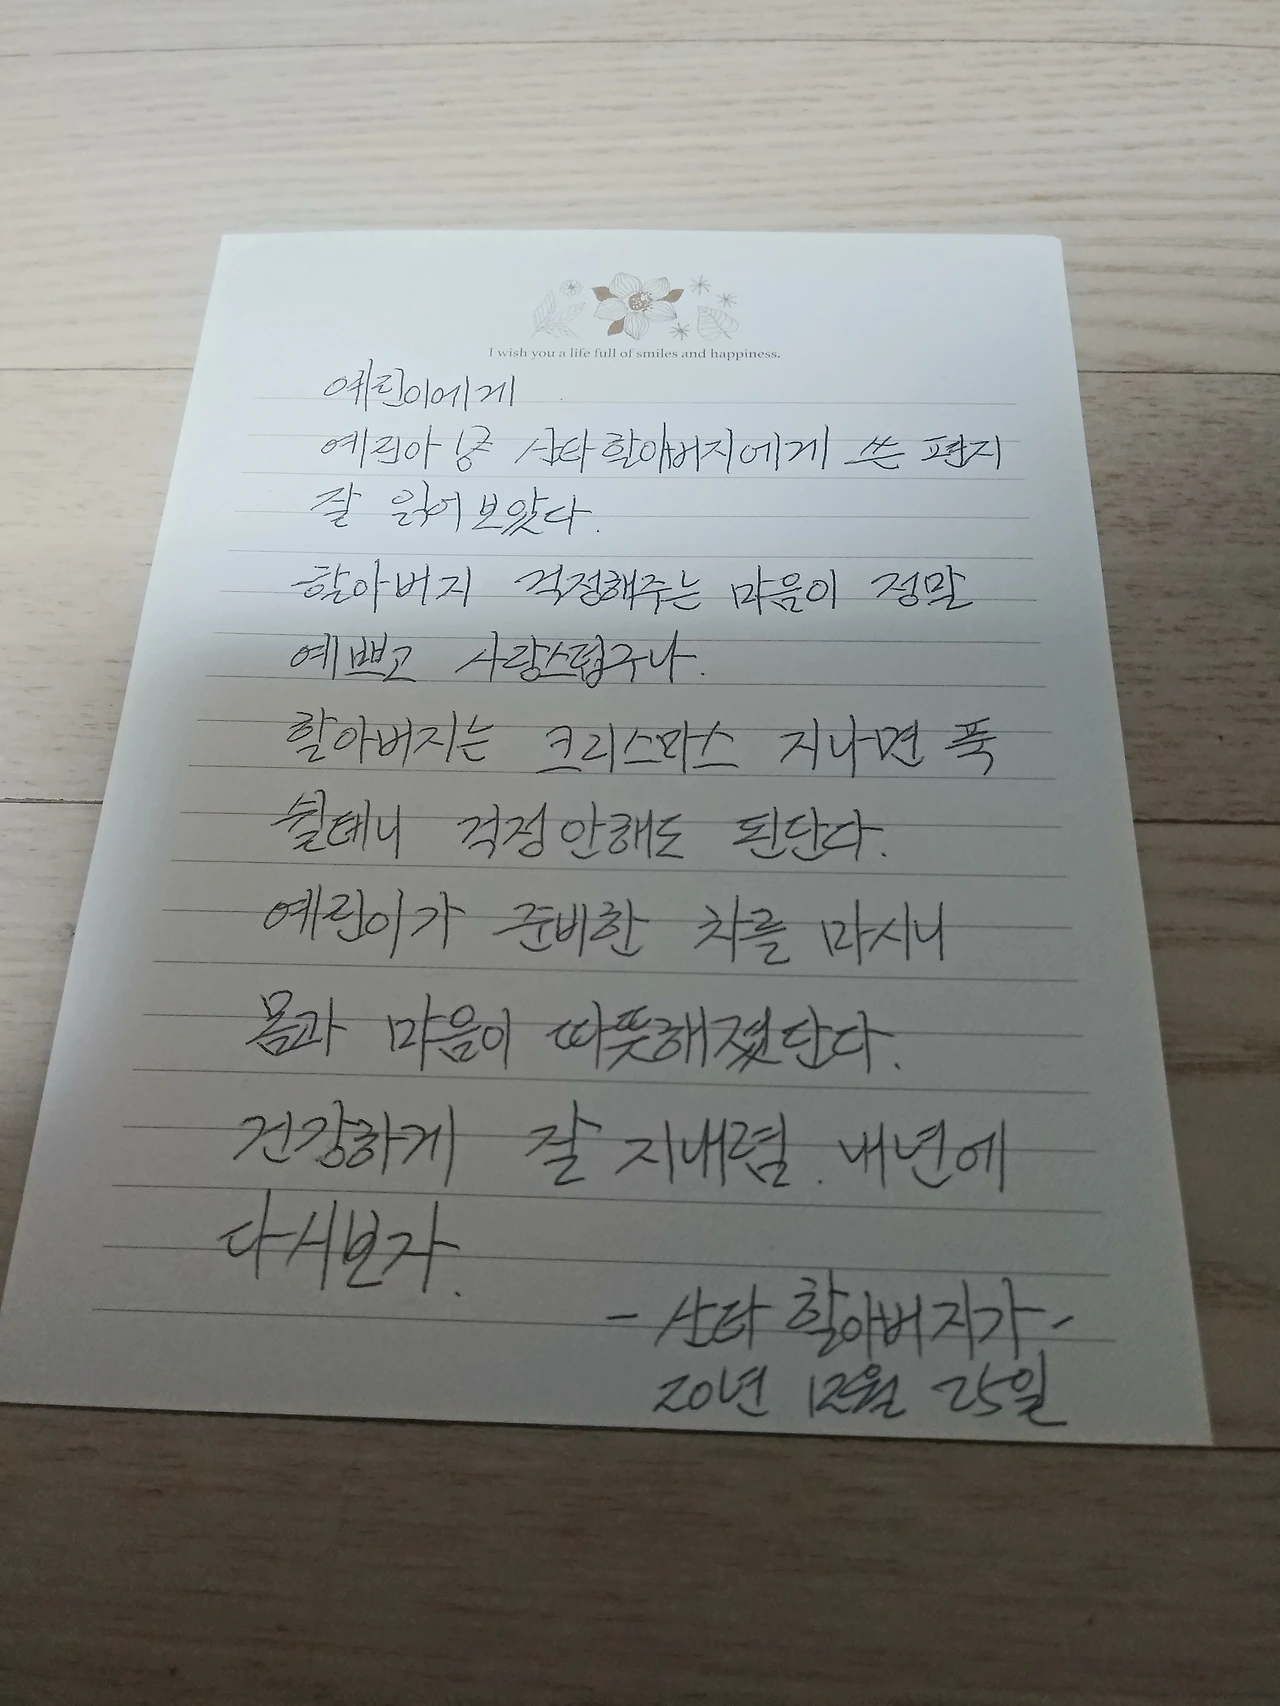 I wish you a life full of smiles and happiness.
예린이에게
예린아 산타할아버지에게 쓴 편지
잘 읽어보았다.
할아버지 걱정해주는 마음이 정말
예쁘고 사랑스럽구나.
할아버지는 크리스마스 지나면 푹
쉴테니 걱정안해도 된단다.
예린이가 준비한 차를 마시니
몸과 마음이 따뜻해졌단다.
건강하게 잘 지내렴. 내년에
다시보자.
- 산타 할아버지가 -
20년 12월 25일